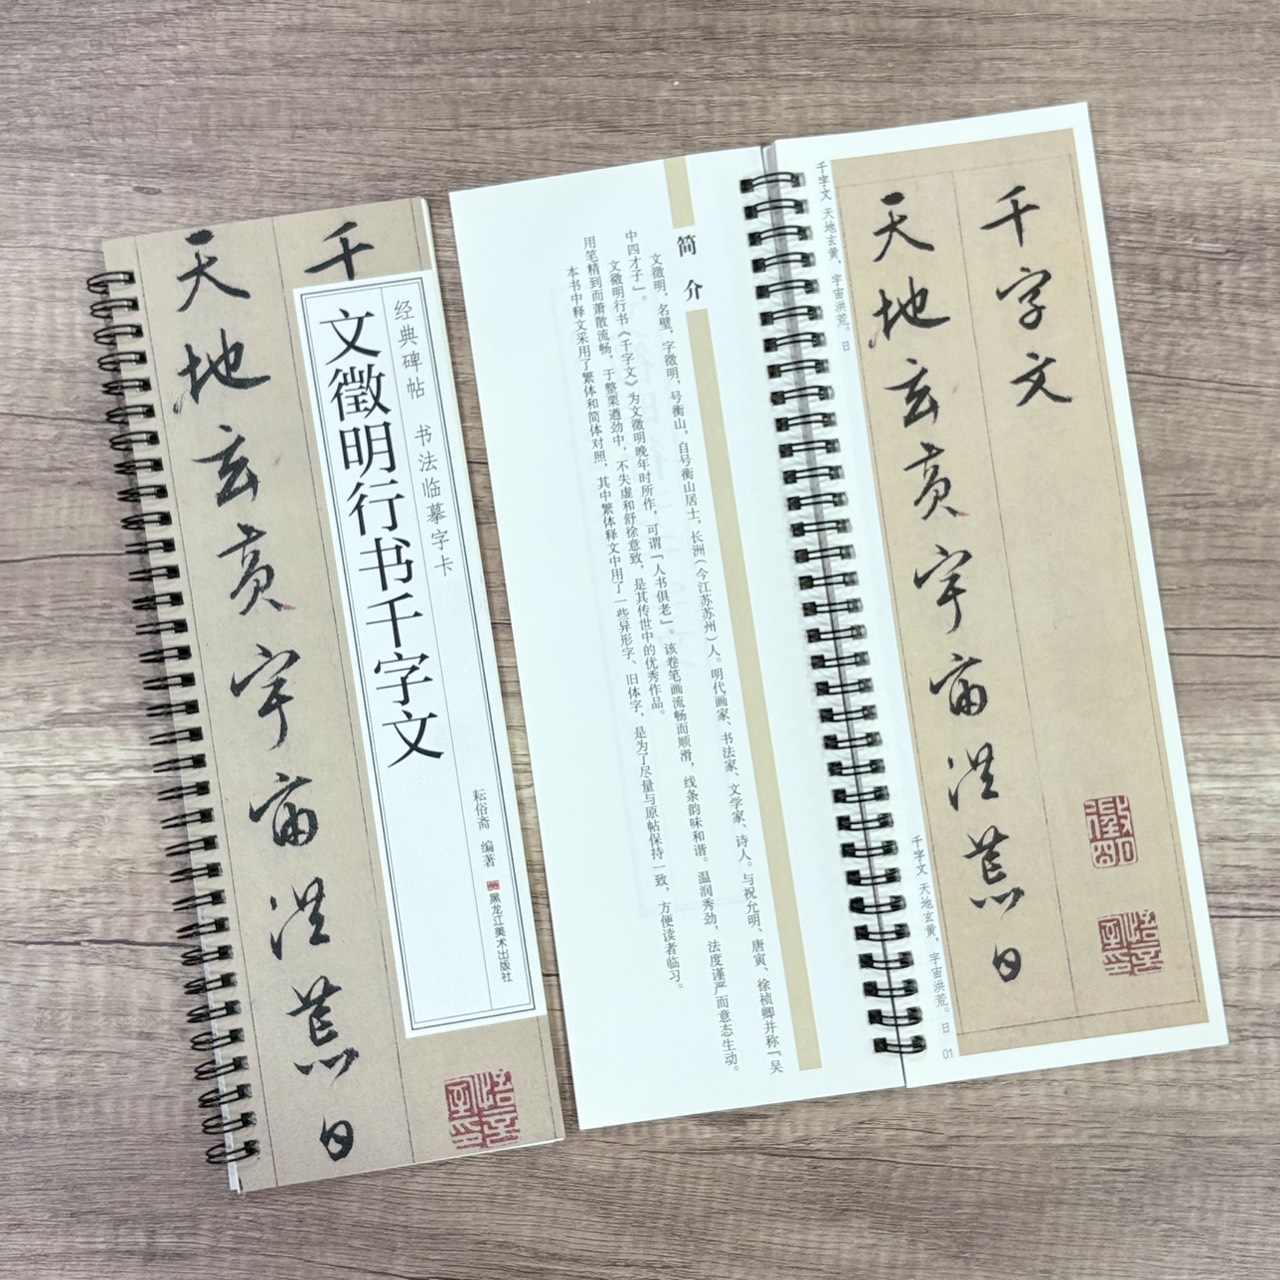 千
天地玄黄宇宙洪荒日
经典碑帖 书法临摹字卡
文徵明行书千字文
耘俗斋 编著
黑龙江美术出版社
简介
文徵明，名璧，字徵明，号衡山，自号衡山居士，长洲（今江苏苏州）人。明代画家、书法家、文学家、诗人。与祝允明、唐寅、徐祯卿并称『吴
中四才子』。
文徵明行书《千字文》为文徵明晚年时所作，可谓『人书俱老』。该卷笔画流畅而顺滑，线条韵味和谐。温润秀劲，法度谨严而意态生动。
用笔精到而萧散流畅，于整栗遒劲中，不失虚和舒徐意致，是其传世中的优秀作品。
本书中释文采用了繁体和简体对照，其中繁体释文中用了一些异形字、旧体字，是为了尽量与原帖保持一致，方便读者临习。
千字文
天地玄黄宇宙洪荒日
千字文 天地玄黄，宇宙洪荒。日
千字文 天地玄黄，宇宙洪荒。日
01